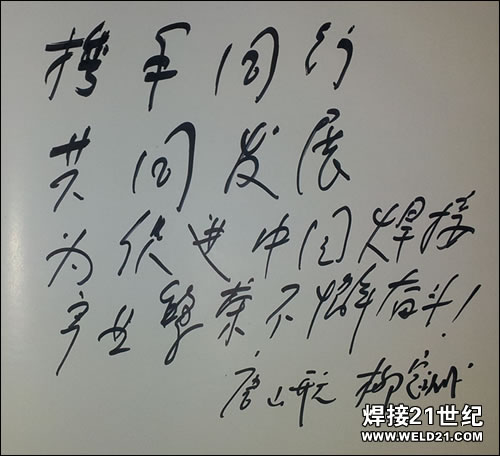 携手同行
共同发展
为促进中国焊接
产业繁荣不懈奋斗!
唐山
焊接21世纪
WWW.WELD21.COM